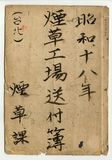 昭和十八年
煙草工場送付簿
煙草課